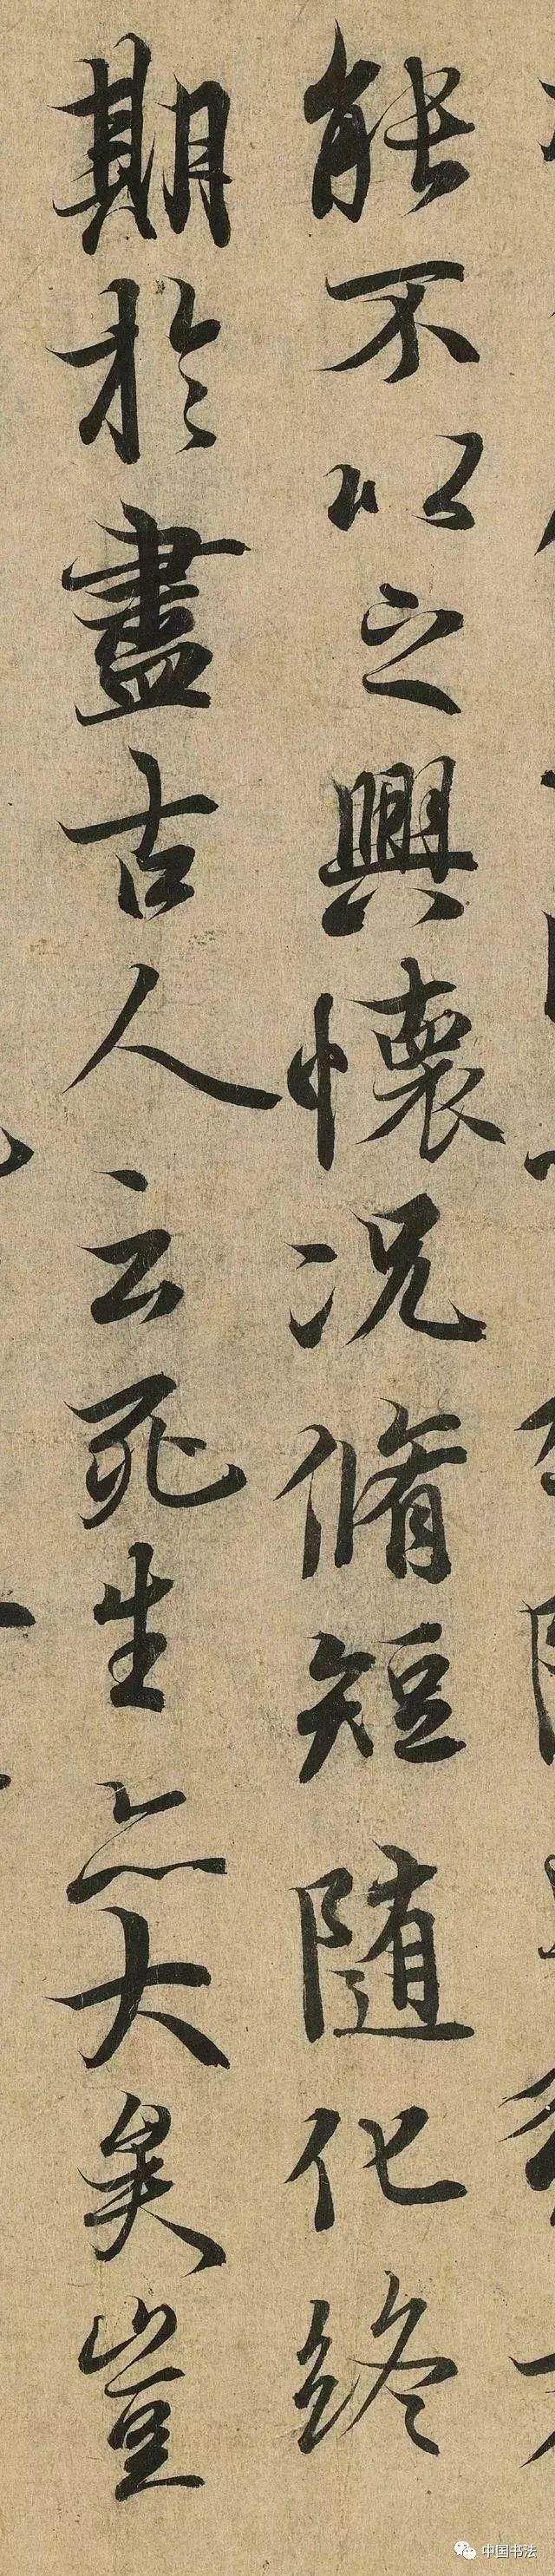 能不以之興懷况脩短随化终
期於盡古人云死生亦大矣豈
中国书法